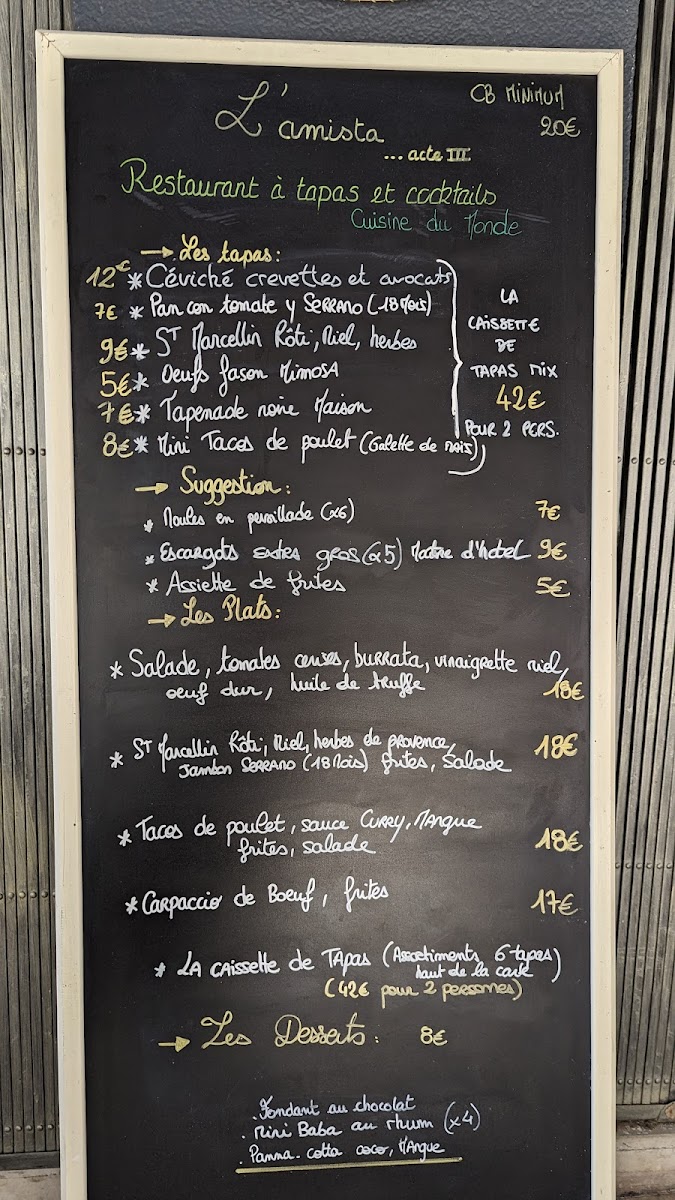 L'amista
CB MINIMUM
20€
... acte III
Restaurant à tapas et cocktails
Cuisine du Monde
→ Les tapas:
12€ * Céviché crevettes et avocats
7€ * Pan con tomate y SERRANO (18 Mois)
9€ * ST Marcellin Rôti, Miel, herbes
5€ * Oeufs fason MIMOSA
7€ * Tapenade noire Maison
8€ * Mini Tacos de poulet (Galette de maïs)
LA
CAISSETTE
DE
TAPAS MIX
42€
POUR 2 PERS.
→ Suggestion:
* Moules en persillade (x6) 7€
* Escargots extra gros (x5) Maître d'hotel 9€
* Assiette de frites 5€
→ Les Plats:
* Salade, tomates cerises, burrata, vinaigrette miel,
oeuf dur, huile de truffe 18€
* ST Marcellin Rôti, Miel, herbes de provence, 18€
Jambon SERRANO (18 Mois) frites, Salade
* Tacos de poulet, sauce CURRY, MANgue
frites, salade 18€
* CARPACCIO de Boeuf, frites 17€
* LA CAissette de TApAs (Assortiments 6 tapas
haut de la carte)
(42€ pour 2 personnes)
→ Les Desserts: 8€
. Fondant au chocolat
. Mini Baba au rhum (x4)
. Panna-cotta coco, MANgue